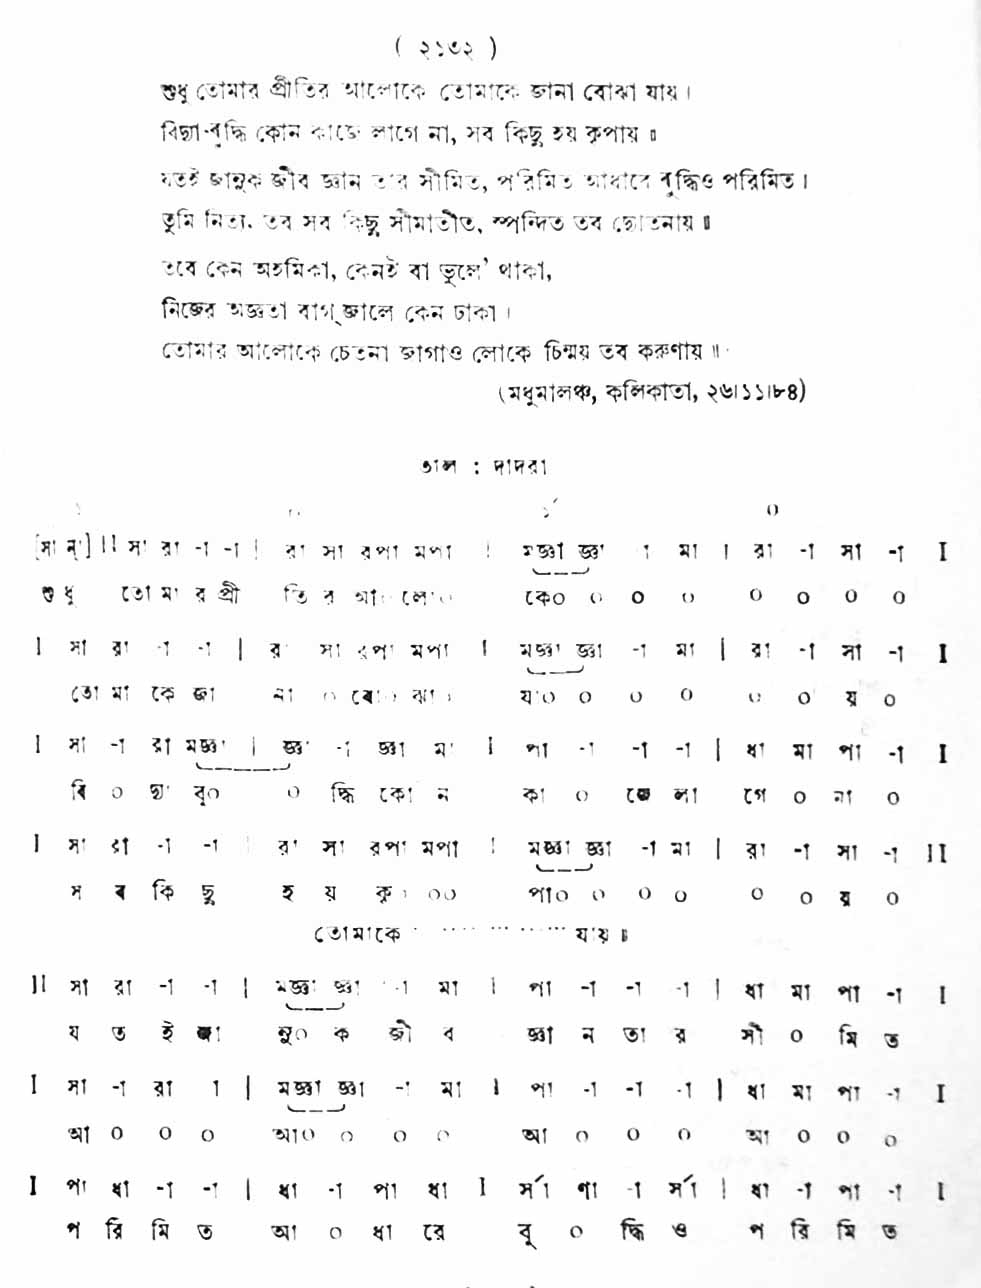 ( ২১৩২ )
শুধু তোমার প্রীতির আলোকে তোমাকে জানা বোঝা যায়।
বিদ্যা-বুদ্ধি কোন কাজে লাগে না, সব কিছু হয় কৃপায়॥
যতই জানুক জীব জ্ঞান তার সীমিত, পরিমিত আধারে বুদ্ধিও পরিমিত।
তুমি নিত্য, তব সব কিছু সীমাতীত, স্পন্দিত তব দ্যোতনায়॥
তবে কেন অহমিকা, কেনই বা ভুলে' থাকা,
নিজের অজ্ঞতা বাগ্‌জালে কেন ঢাকা।
তোমার আলোকে চেতনা জাগাও লোকে চিন্ময় তব করুণায়॥
(মধুমালঞ্চ, কলিকাতা, ২৬।১১।৮৪)
তাল : দাদরা
১ ০ ১´ ০
[সা ন্‌া] II সা রা -া -া | রা সা রপা মপা | মজ্ঞা জ্ঞা -া মা | রা -া সা -া I
শু ধু তো মা র প্রী তি র আ০ লো০ কে০ ০ ০ ০ ০ ০ ০ ০
I সা রা -া -া | রা সা রপা মপা I মজ্ঞা জ্ঞা -া মা | রা -া সা -া I
তো মা কে জা না ০ বো০ ঝা০ যা০ ০ ০ ০ ০ ০ য় ০
I সা -া রা মজ্ঞা | জ্ঞা -া জ্ঞা মা I পা -া -া -া | ধা মা পা -া I
বি ০ দ্যা বু০ ০ দ্ধি কো ন কা ০ জে লা গে ০ না ০
I সা রা -া -া | রা সা রপা মপা | মজ্ঞা জ্ঞা -া মা | রা -া সা -া II
স ব কি ছু হ য় কৃ০ ০০ পা০ ০ ০ ০ ০ ০ য় ০
তোমাকে ·· ····· ··· ····· যায়॥
II সা রা -া -া | মজ্ঞা জ্ঞা -া মা | পা -া -া -া | ধা মা পা -া I
য ত ই জা নু০ ক জী ব জ্ঞা ন তা র সী ০ মি ত
I সা -া রা া | মজ্ঞা জ্ঞা -া মা I পা -া -া -া | ধা মা পা -া I
আ ০ ০ ০ আ০ ০ ০ ০ আ ০ ০ ০ আ ০ ০ ০
I পা ধা -া -া | ধা -া পা ধা I র্সা ণা -া র্সা | ধা -া পা -া I
প রি মি ত আ ০ ধা রে বু ০ দ্ধি ও প রি মি ত